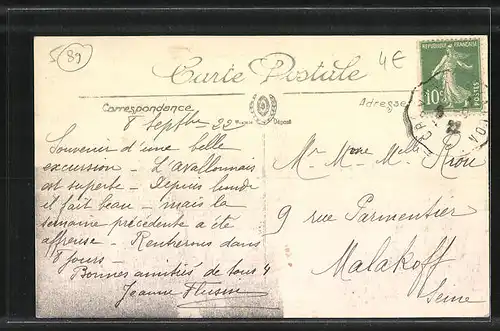 5 89
4€
REPUBLIQUE FRANÇAISE
10c
POSTES
22
Carte Postale
Correspondance
Adresse
Déposé
8 Septbre 22
Souvenir d'une belle
excursion - L'Avallonnais
est superbe - Depuis lundi
il fait beau - mais la
semaine précédente a été
affreuse - Rentrerons dans
8 jours -
Bonnes amitiés de tous 4
Jeanne
Mr Mme Melle
9 rue Parmentier
Malakoff
Seine